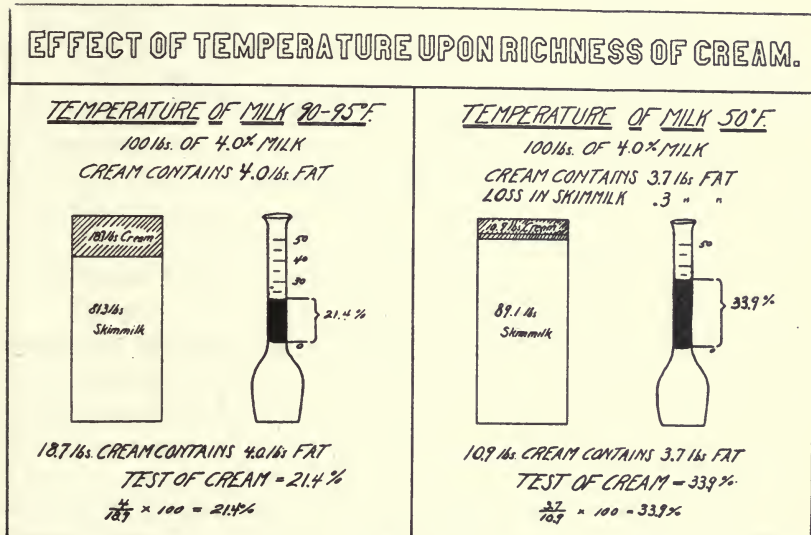 EFFECT OF TEMPERATURE UPON RICHNESS OF CREAM.
TEMPERATURE OF MILK 90-95°F.
100 lbs. OF 4.0% MILK
CREAM CONTAINS 4.0 lbs. FAT
18.7 lbs Cream
50
40
30
81.3 lbs
Skimmilk
21.4%
0
18.7 lbs. CREAM CONTAINS 4.0 lbs FAT
TEST OF CREAM = 21.4%
4/18.7 × 100 = 21.4%
TEMPERATURE OF MILK 50°F.
100 lbs. OF 4.0% MILK
CREAM CONTAINS 3.7 lbs FAT
LOSS IN SKIMMILK .3 " "
10.9 lbs Cream
50
89.1 lbs
Skimmilk
33.9%
0
10.9 lbs. CREAM CONTAINS 3.7 lbs FAT
TEST OF CREAM = 33.9%.
3.7/10.9 × 100 = 33.9%